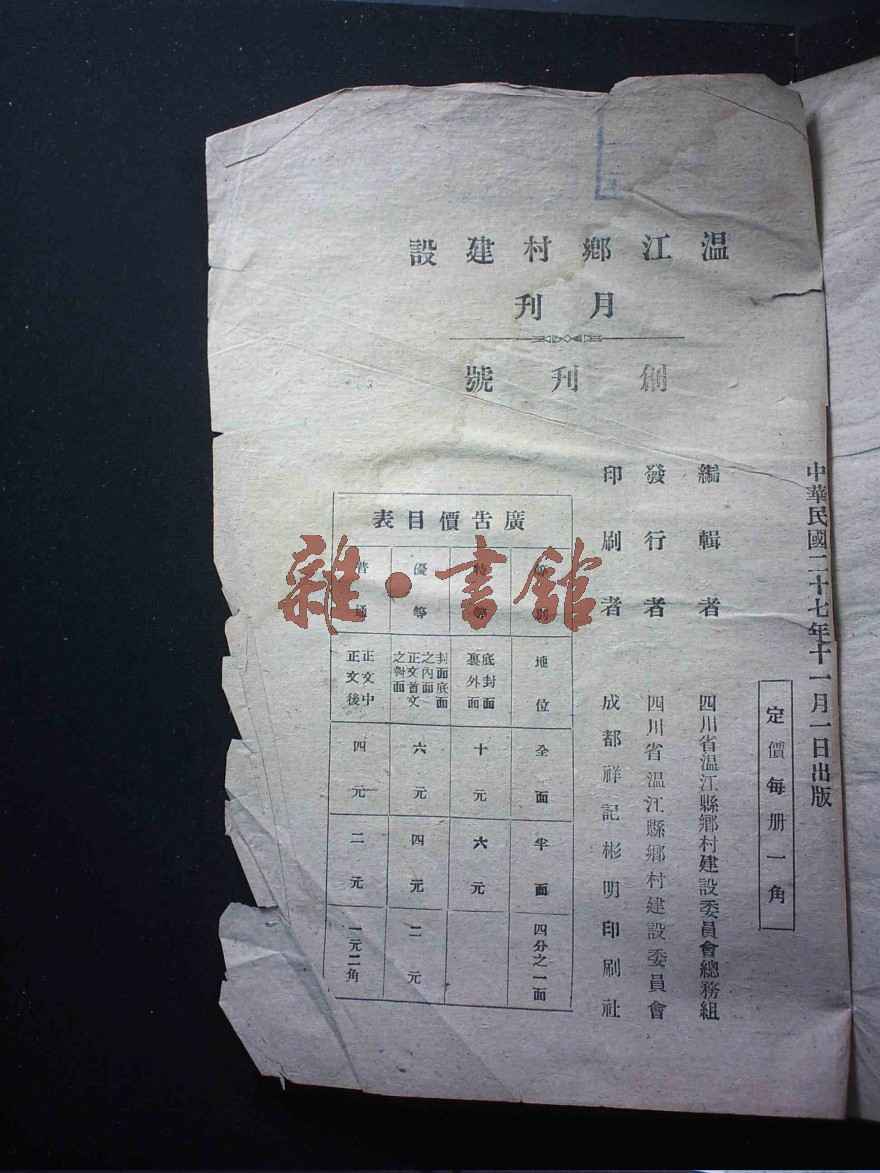 溫江鄉村建設
月刊
創刊號
中華民國二十七年十一月一日出版
定價每册一角
編輯者 四川省溫江縣鄉村建設委員會總務組
發行者 四川省溫江縣鄉村建設委員會
印刷者 成都祥記彬明印刷社
廣告價目表
等別 地位 全面 半面 四分之一面
特等 底封面裏外面 十元 六元
優等 封面底面之內面正文首文之對面 六元 四元 二元
普通 正文中正文後 四元 二元 一元二角
雜·書館